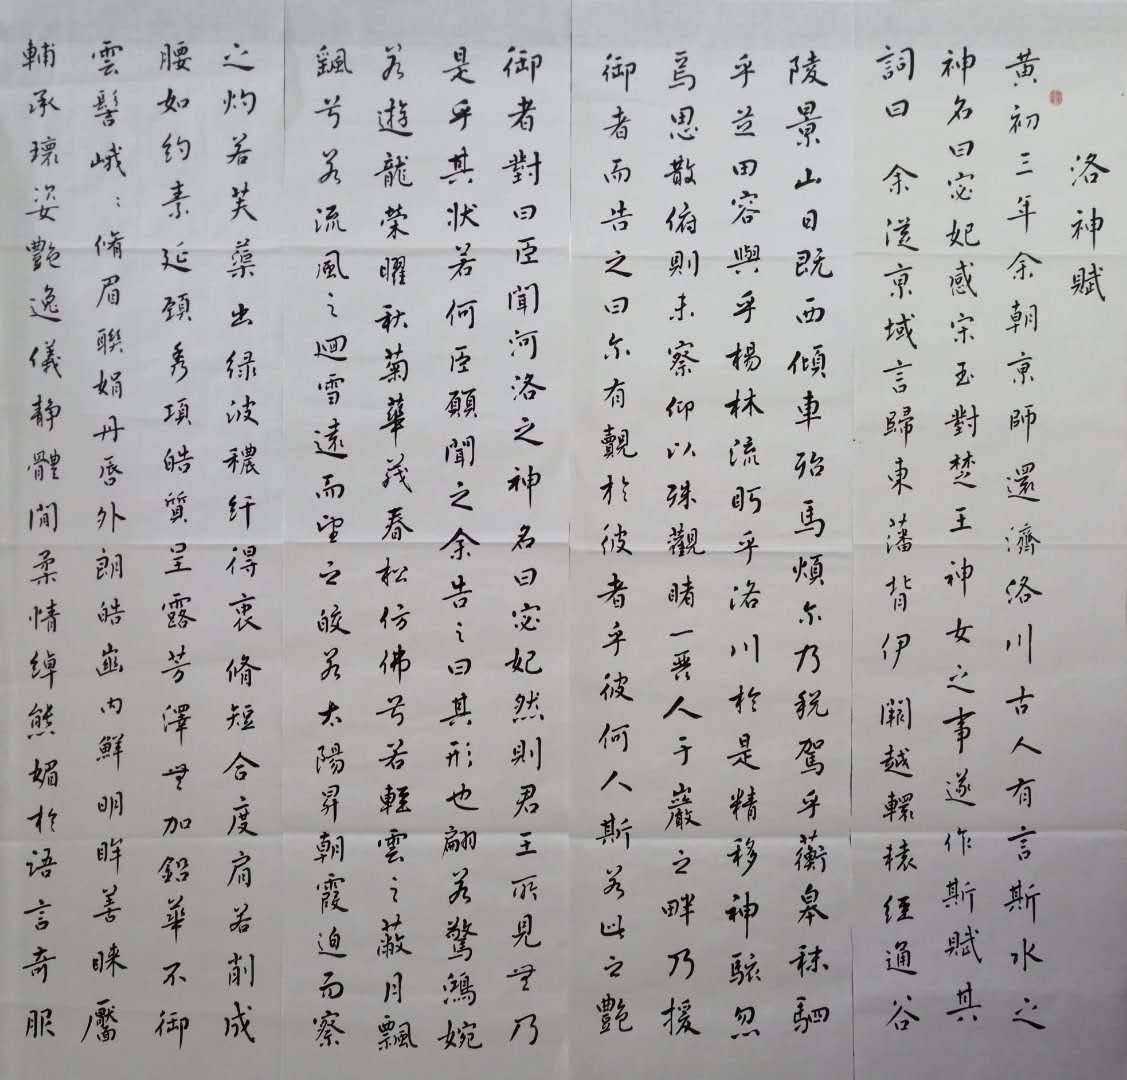 洛神賦
黄初三年余朝京師還濟洛川古人有言斯水之
神名曰宓妃感宋玉對楚王神女之事遂作斯賦其
詞曰 余從京域言歸東藩背伊闕越轘轅經通谷
陵景山日既西傾車殆馬煩尔乃税駕乎蘅皋秣駟
乎芝田容與乎楊林流眄乎洛川於是精移神駭忽
焉思散俯則未察仰以殊觀睹一麗人于巖之畔乃援
御者而告之曰尔有覿於彼者乎彼何人斯若此之艷
御者對曰臣聞河洛之神名曰宓妃然則君王所見無乃
是乎其狀若何臣願聞之余告之曰其形也翩若驚鴻婉
若遊龍榮曜秋菊華茂春松仿佛兮若輕雲之蔽月飄
飖兮若流風之迴雪遠而望之皎若太陽昇朝霞迫而察
之灼若芙蕖出绿波穠纤得衷脩短合度肩若削成
腰如约素延頸秀項皓質呈露芳澤無加鉛華不御
雲髻峨峨脩眉聯娟丹唇外朗皓齒内鮮明眸善睐靨
輔承瓌姿艷逸儀静體閒柔情綽態媚於語言奇服